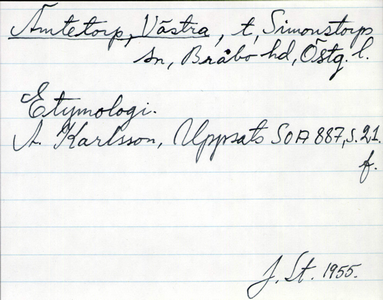 Ämtetorp, Västra, t, Simonstorps
sn, Bråbo hd, Östg. l.
Etymologi.
A. Karlsson, Uppsats SOA 887, s. 21.
f.
J. St. 1955.